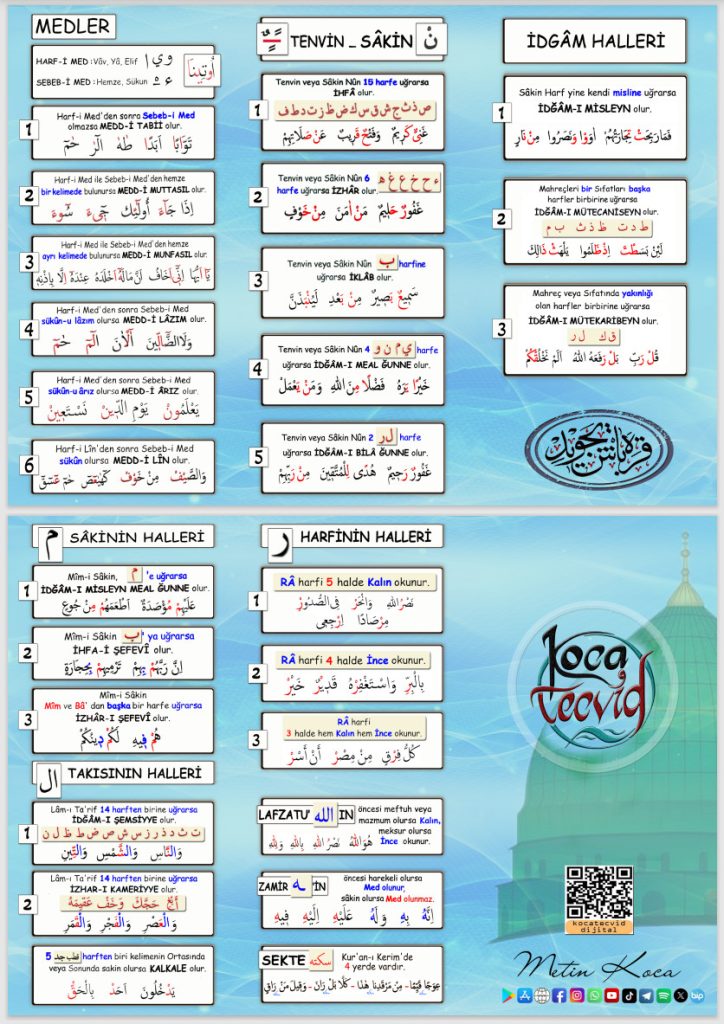 MEDLER
HARF-İ MED : Vâv, Yâ, Elif و ي ا
SEBEB-İ MED : Hemze, Sükun
أُوتِينَا
1
Harf-i Med'den sonra Sebeb-i Med
olmazsa MEDD-İ TABİİ olur.
تَوَّابًا اَبَدًا طٰهٰ الٓرٰ حٰمٓ
2
Harf-i Med ile Sebeb-i Med'den hemze
bir kelimede bulunursa MEDD-İ MUTTASIL olur.
اِذَا جَٓاءَ اُو۬لٰٓئِكَ ج۪ٓيءَ سُٓوءَ
3
Harf-i Med ile Sebeb-i Med'den hemze
ayrı kelimede bulunursa MEDD-İ MUNFASIL olur.
يَٓا اَيُّهَا اِنّ۪ٓي اَخَافُ اَنَّ مَالَهُٓ اَخْلَدَهُ عِنْدَهُٓ اِلَّا بِاِذْنِه۪
4
Harf-i Med'den sonra Sebeb-i Med
sükûn-u lâzım olursa MEDD-İ LÂZIM olur.
وَلَا الضَّٓالّ۪ينَ آٰلْـٰٔنَ الٓمٓ حٰمٓ
5
Harf-i Med'den sonra Sebeb-i Med
sükûn-u ârız olursa MEDD-İ ÂRIZ olur.
يَعْلَمُونَ يَوْمِ الدّ۪ينِ نَسْتَع۪ينُ
6
Harf-i Lîn'den sonra Sebeb-i Med
sükûn olursa MEDD-İ LÎN olur.
وَالصَّيْفِ مِنْ خَوْفٍ كٓهٰيٰعٓصٓ حٰمٓ عٓسٓقٓ
TENVİN _ SÂKİN نْ
1
Tenvin veya Sâkin Nûn 15 harfe uğrarsa
İHFÂ olur.
ص ذ ث ج ش ق س ك ض ظ ز ت د ط ف
غَنِيٌّ كَر۪يمٌ وَفَتْحٌ قَر۪يبٌ عَنْ صَلَاتِهِمْ
2
Tenvin veya Sâkin Nûn 6
harfe uğrarsa İZHÂR olur.
ء ح خ ع غ ه
غَفُورٌ حَل۪يمٌ مَنْ اٰمَنَ مِنْ خَوْفٍ
3
Tenvin veya Sâkin Nûn ب harfine
uğrarsa İKLÂB olur.
سَم۪يعٌ بَص۪يرٌ مِنْ بَعْدِ لَيُنْبَذَنَّ
4
Tenvin veya Sâkin Nûn 4 ي م ن و harfe
uğrarsa İDĞÂM-I MEAL ĞUNNE olur.
خَيْرًا يَرَهُ فَضْلًا مِنَ اللّٰهِ وَمَنْ يَعْمَلْ
5
Tenvin veya Sâkin Nûn 2 ل ر harfe
uğrarsa İDĞÂM-I BİLÂ ĞUNNE olur.
غَفُورٌ رَح۪يمٌ هُدًى لِلْمُتَّق۪ينَ مِنْ رَبِّهِمْ
İDGÂM HALLERİ
1
Sâkin Harf yine kendi misline uğrarsa
İDĞÂM-I MİSLEYN olur.
فَمَا رَبِحَتْ تِجَارَتُهُمْ اٰوَوْا وَنَصَرُوا مِنْ نَارٍ
2
Mahreçleri bir Sıfatları başka
harfler birbirine uğrarsa
İDĞÂM-I MÜTECANİSEYN olur.
ط د ت ظ ذ ث ب م
لَئِنْ بَسَطْتَ اِذْ ظَلَمُوا يَلْهَثْ ذٰلِكَ
3
Mahreç veya Sıfatında yakınlığı
olan harfler birbirine uğrarsa
İDĞÂM-I MÜTEKARİBEYN olur.
ق ك ل ر
قُلْ رَبِّ بَلْ رَفَعَهُ اللّٰهُ اَلَمْ نَخْلُقْكُمْ
قره باش تجويد
م SÂKİNİN HALLERİ
1
Mîm-i Sâkin, م 'e uğrarsa
İDĞÂM-I MİSLEYN MEAL ĞUNNE olur.
عَلَيْهِمْ مُؤْصَدَةٌ اَطْعَمَهُمْ مِنْ جُوعٍ
2
Mîm-i Sâkin ب ' ya uğrarsa
İHFA-İ ŞEFEVÎ olur.
اِنَّ رَبَّهُمْ بِهِمْ تَرْم۪يهِمْ بِحِجَارَةٍ
3
Mîm-i Sâkin
Mîm ve Bâ' dan başka bir harfe uğrarsa
İZHÂR-I ŞEFEVÎ olur.
هُمْ ف۪يهِ لَكُمْ د۪ينُكُمْ
ال TAKISININ HALLERİ
1
Lâm-ı Ta'rif 14 harften birine uğrarsa
İDĞÂM-I ŞEMSİYYE olur.
ت ث د ذ ر ز س ش ص ض ط ظ ل ن
وَالنَّاسِ وَالشَّمْسِ وَالتّ۪ينِ
2
Lâm-ı Ta'rif 14 harften birine uğrarsa
İZHAR-I KAMERİYYE olur.
اَبْغِ حَجَّكَ وَخَفْ عَق۪يمَهُ
وَالْعَصْرِ وَالْفَجْرِ وَالْقَمَرِ
5 قطب جد harften biri kelimenin Ortasında
veya Sonunda sakin olursa KALKALE olur.
يَدْخُلُونَ اَحَدْ بِالْحَقّْ
ر HARFİNİN HALLERİ
1
RÂ harfi 5 halde Kalın okunur.
نَصْرُ اللّٰهِ وَانْحَرْ فِي الصُّدُورْ
مِرْصَادًا اِرْجِع۪ي
2
RÂ harfi 4 halde İnce okunur.
بِالْبِرِّ وَاسْتَغْفِرْهُ قَد۪يرْ خَيْرْ
3
RÂ harfi
3 halde hem Kalın hem İnce okunur.
كُلُّ فِرْقٍ مِنْ مِصْرْ اَنْ اَسْرْ
LAFZATU' الله IN
öncesi meftuh veya
mazmum olursa Kalın,
meksur olursa
İnce okunur.
هُوَ اللّٰهُ نَصْرُ اللّٰهِ بِاللّٰهِ لِلّٰهِ
ZAMİR ـه 'İN
öncesi harekeli olursa
Med olunur,
sâkin olursa Med olunmaz.
اِنَّهُ بِه۪ وَلَهُ عَلَيْهِ اِلَيْهِ ف۪يهِ
SEKTE سكته
Kur'an-ı Kerim'de
4 yerde vardır.
عِوَجًا قَيِّمًا - مِنْ مَرْقَدِنَا هٰذَا - كَلَّا بَلْ رَانَ - وَق۪يلَ مَنْ رَاقٍ
koca
tecvid
kocatecvid
dijital
Metin Koca
bip